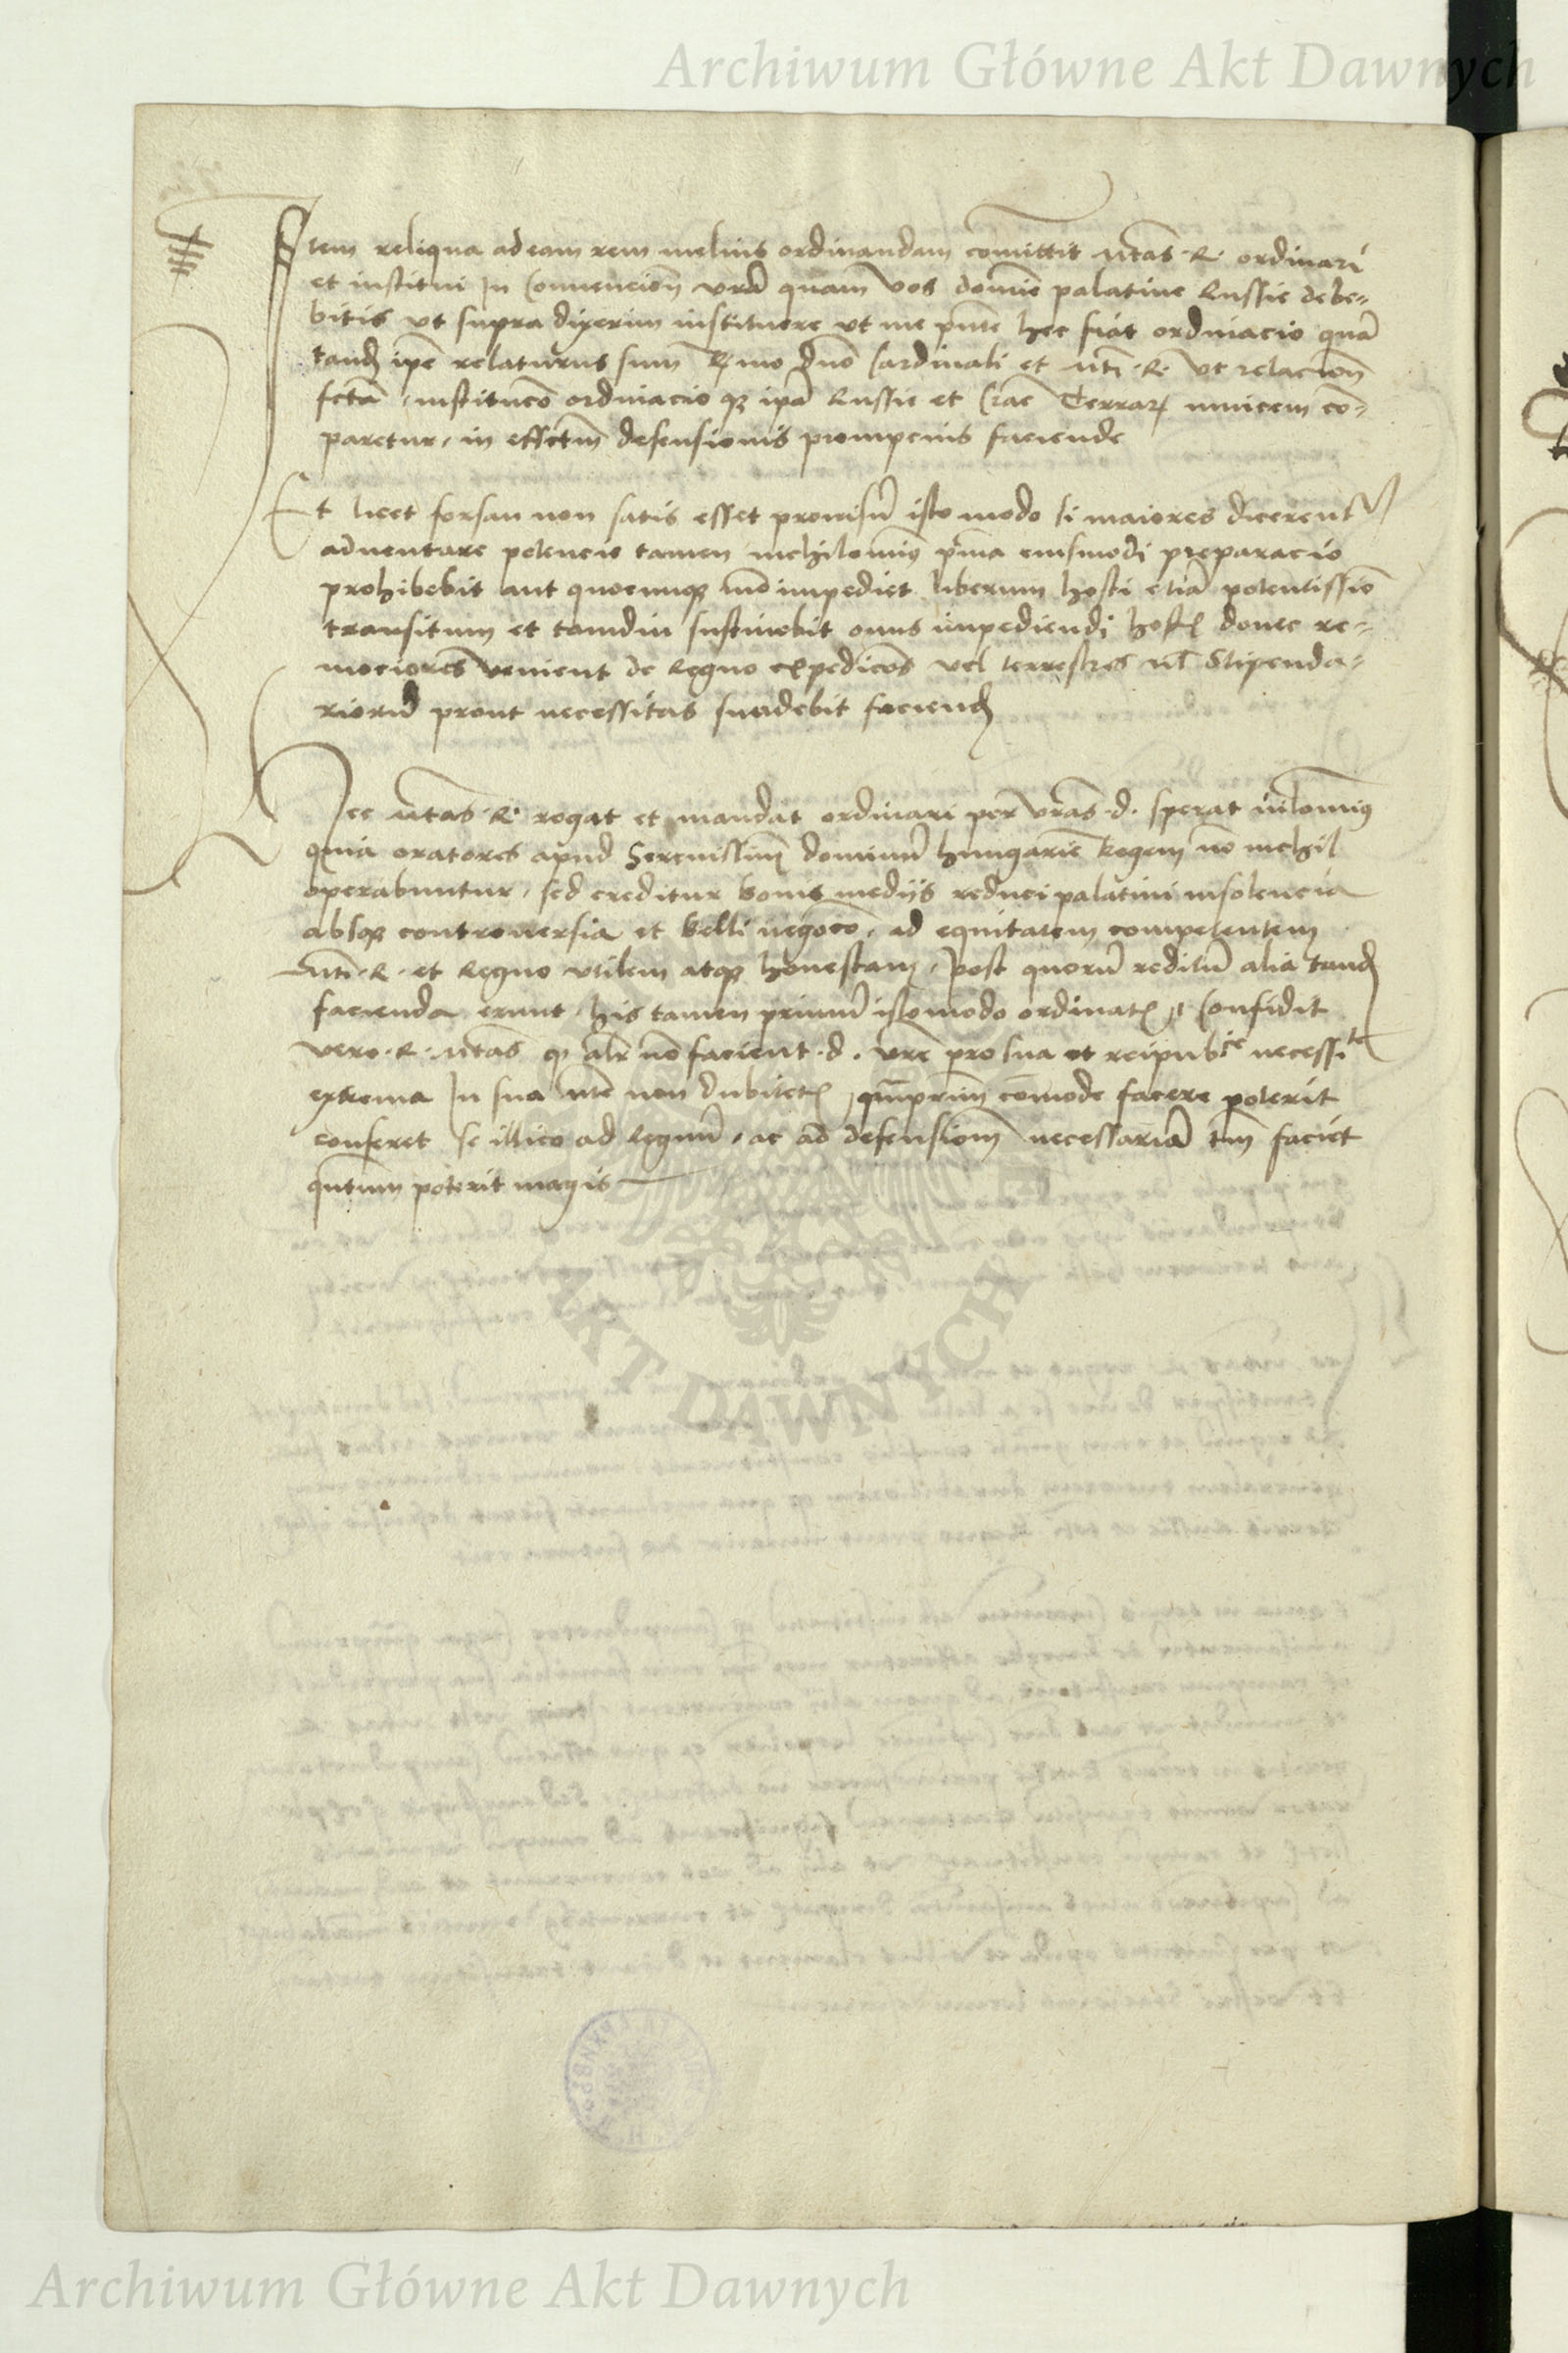 Archiwum Główne Akt Dawnych
Item reliqua ad eam rem melius ordinandam comittit Mtas R. ordinari
et institui In Convencion vra quam vos domine palatine Russie debe-
bitis vt supra dixerim instituere vt me pnte hec fiat ordinacio qua
tand ipe relaturus sum Rmo dno Cardinali et Mti R. vt relacion
fcta instituco ordinacio qz ipa Russie et Terrar invicem co-
paretur in effctum defensionis prompcius faciende
Et licet forsan non satis esset provisu isto modo si maiores dicerent
adventare potencie tamen nichilomi pma eiusmodi preparacio
prohibebit aut quocunqz mo impediet liberum hosti etia potentissio
transitum et tamdiu sustinebit onus impediendi host donec re-
mociores venient de Regno expedicos vel terrestres vl Stipenda-
rioru prout necessitas suadebit faciend
Hec Mtas R. rogat et mandat ordinari per vras d. sperat nilomi
quia oratores apud Serenissim dominu hungarie Regem no nichil
operabuntur sed creditur bonis mediis reduci palatini insolencia
absqz controversia et belli negoco ad equitatem competentem
Mti R. et Regno vtilem atqz honestam post quoru reditu alia tand
facienda erunt his tamen primu isto modo ordinat Confidit
vero R. Mtas qz alr no facient d. vre pro sua et reipubce necessite
extrema In sua Mte non dubitet qmprim comode facere poterit
conferet se illico ad Regnu ac ad defension necessaria tm faciet
qntum poterit magis
AKT DAWNYCH
Archiwum Główne Akt Dawnych